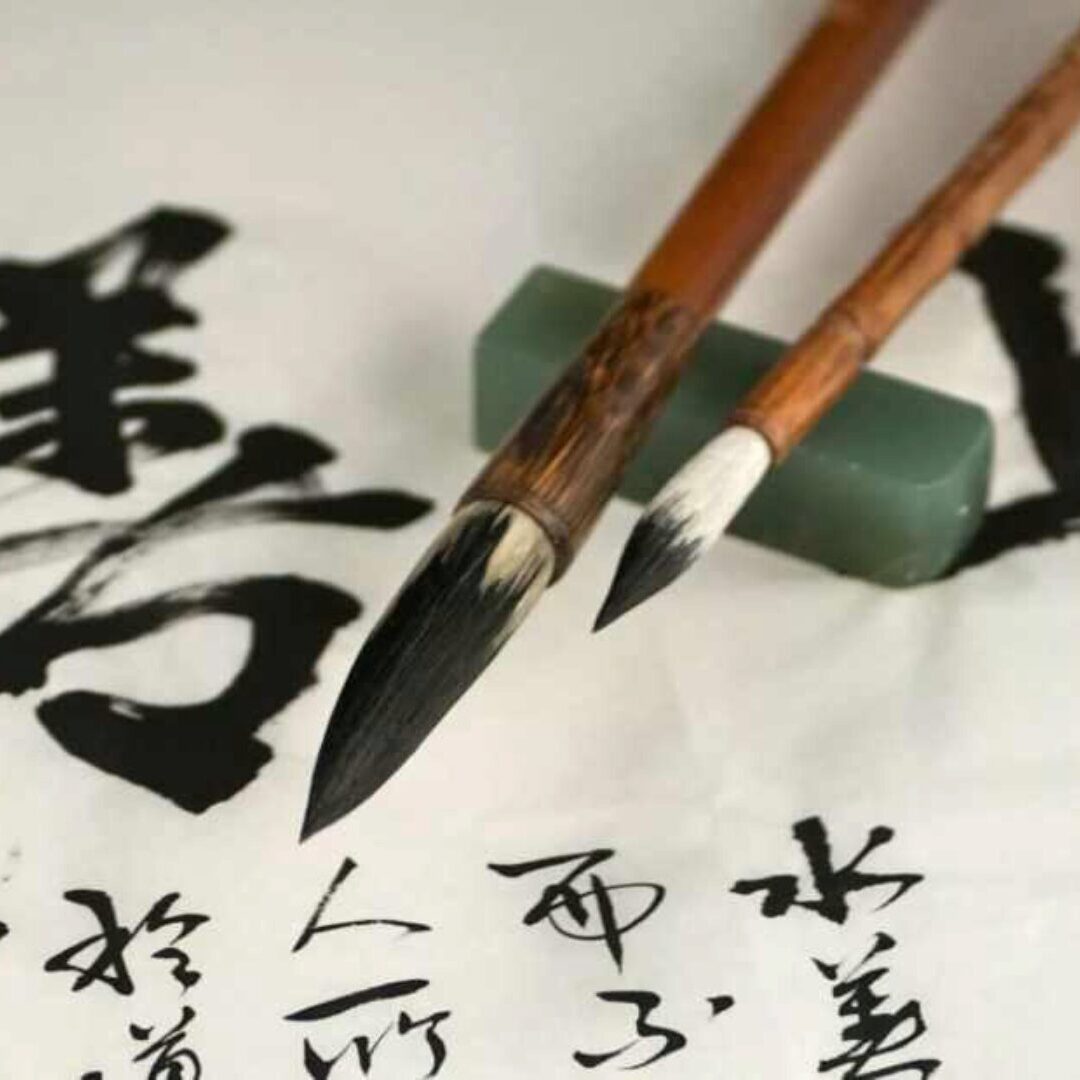 善
水善
而不
人所
於道